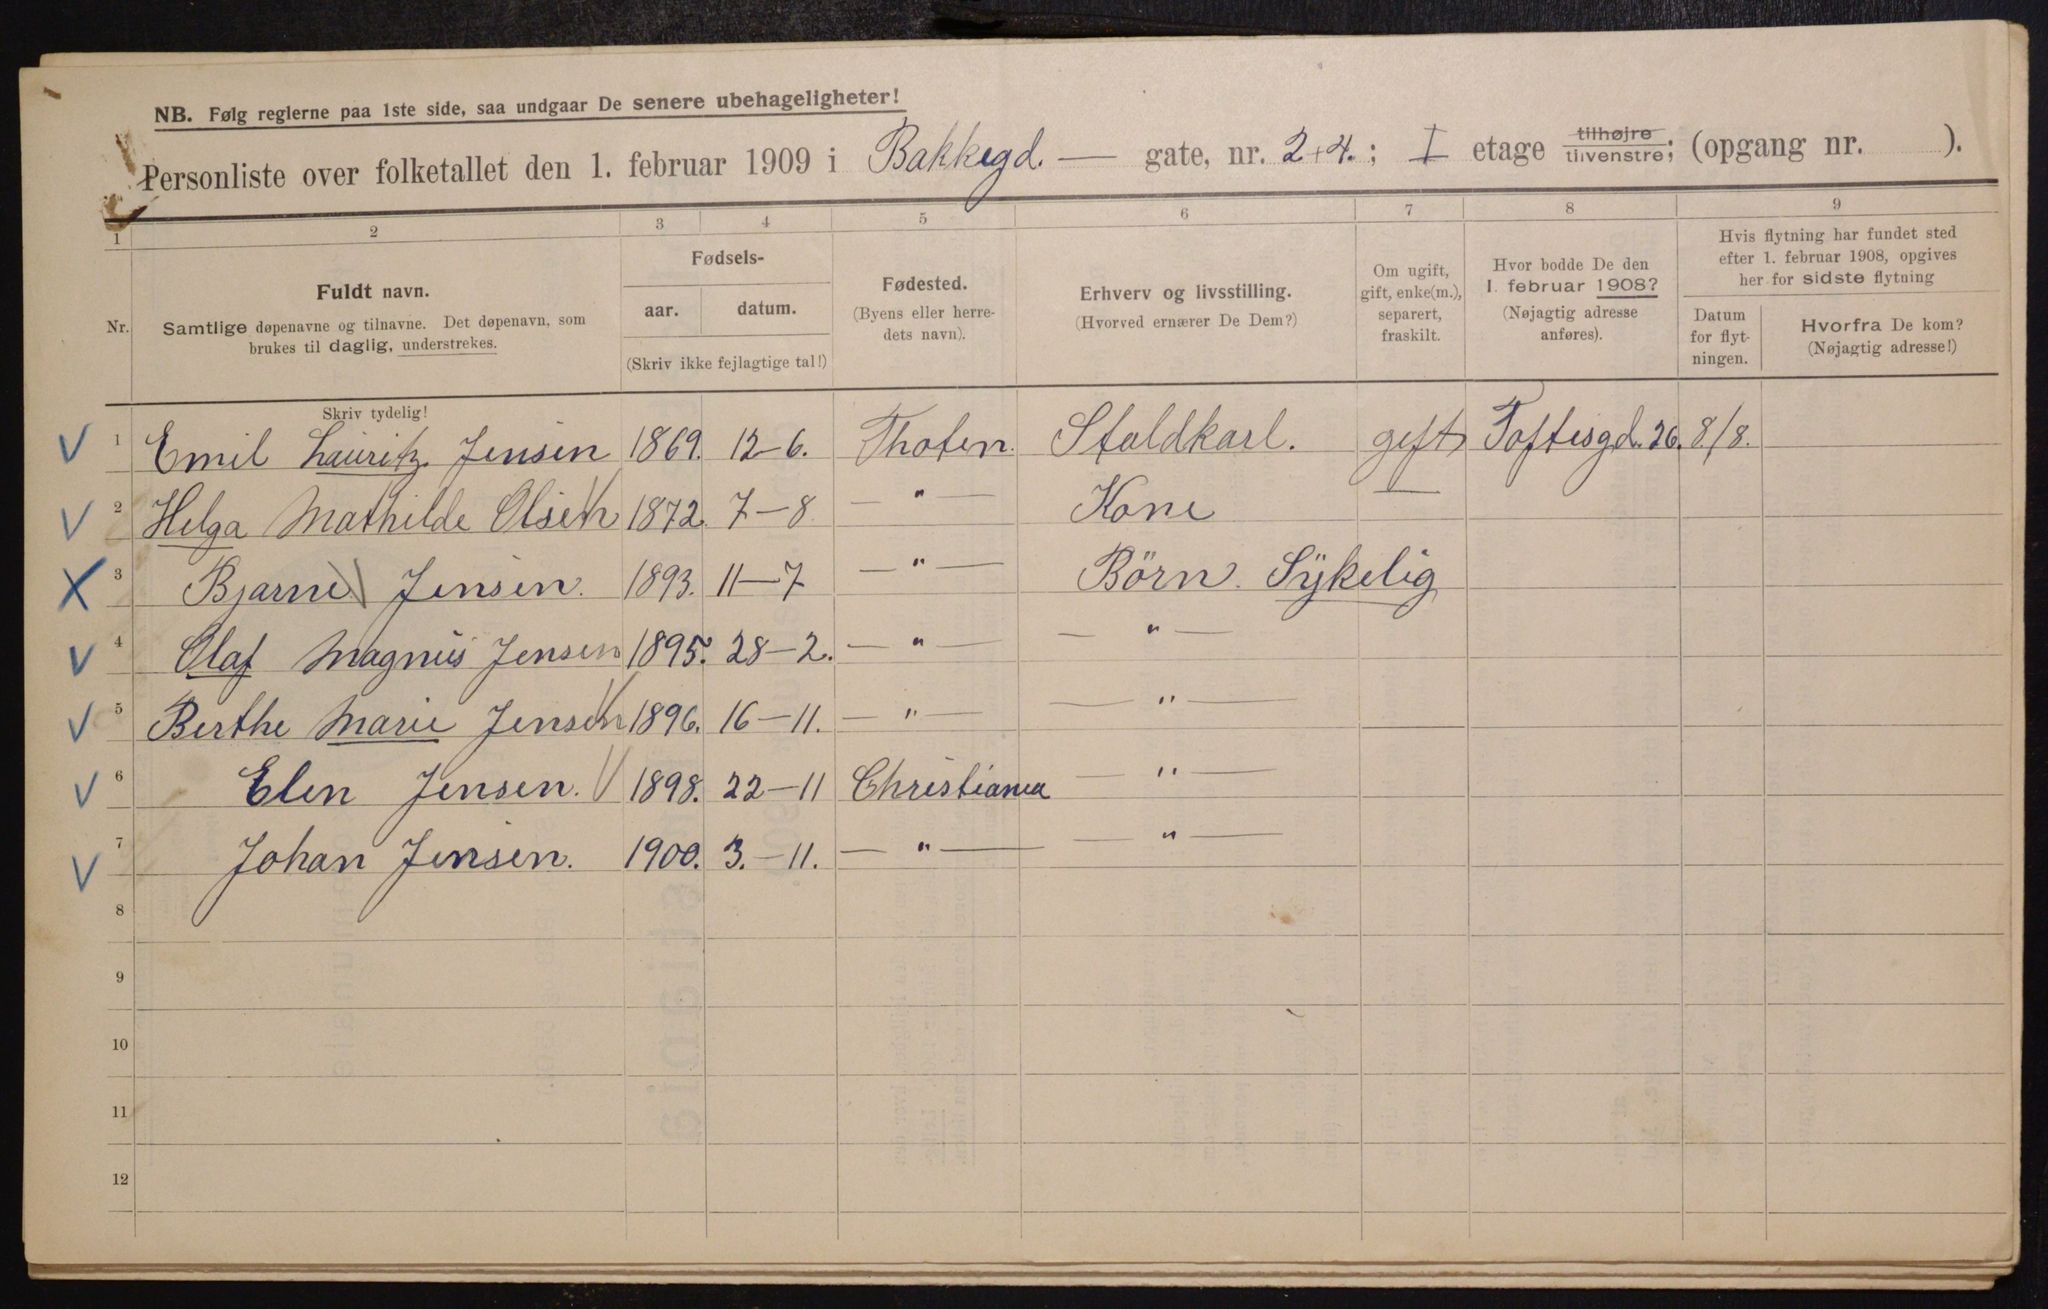 NB. Følg reglerne paa 1ste side, saa undgaar De senere ubehageligheter!
Personliste over folketallet den 1. februar 1909 i Bakkegd. — gate, nr. 2+4. ; I etage tilhøjre tilvenstre; (opgang nr. ).
1 2 3 4 5 6 7 8 9
Nr.
Fuldt navn.
Samtlige døpenavne og tilnavne. Det døpenavn, som
brukes til daglig, understrekes.
Skriv tydelig!
Fødsels-
aar. datum.
(Skriv ikke fejlagtige tal!)
Fødested.
(Byens eller herre-
dets navn).
Erhverv og livsstilling.
(Hvorved ernærer De Dem?)
Om ugift,
gift, enke(m.),
separert,
fraskilt.
Hvor bodde De den
1. februar 1908?
(Nøjagtig adresse
anføres).
Hvis flytning har fundet sted
efter 1. februar 1908, opgives
her for sidste flytning
Datum
for flyt-
ningen.
Hvorfra De kom?
(Nøjagtig adresse!)
1 Emil Lauritz Jensen 1869. 12-6. Thoten. Staldkarl. gift Toftesgd. 26. 8/8.
2 Helga Mathilde Olsen 1872. 7-8 — " — Kone —
3 Bjarne Jensen. 1893. 11-7 — " — Börn. Sÿkelig
4 Olaf Magnus Jensen 1895. 28-2. — " — — " —
5 Berthe Marie Jensen 1896. 16-11. — " — — " —
6 Elen Jensen. 1898. 22-11 Christiania — " —
7 Johan Jensen. 1900. 3.-11. — " — — " —
8
9
10
11
12